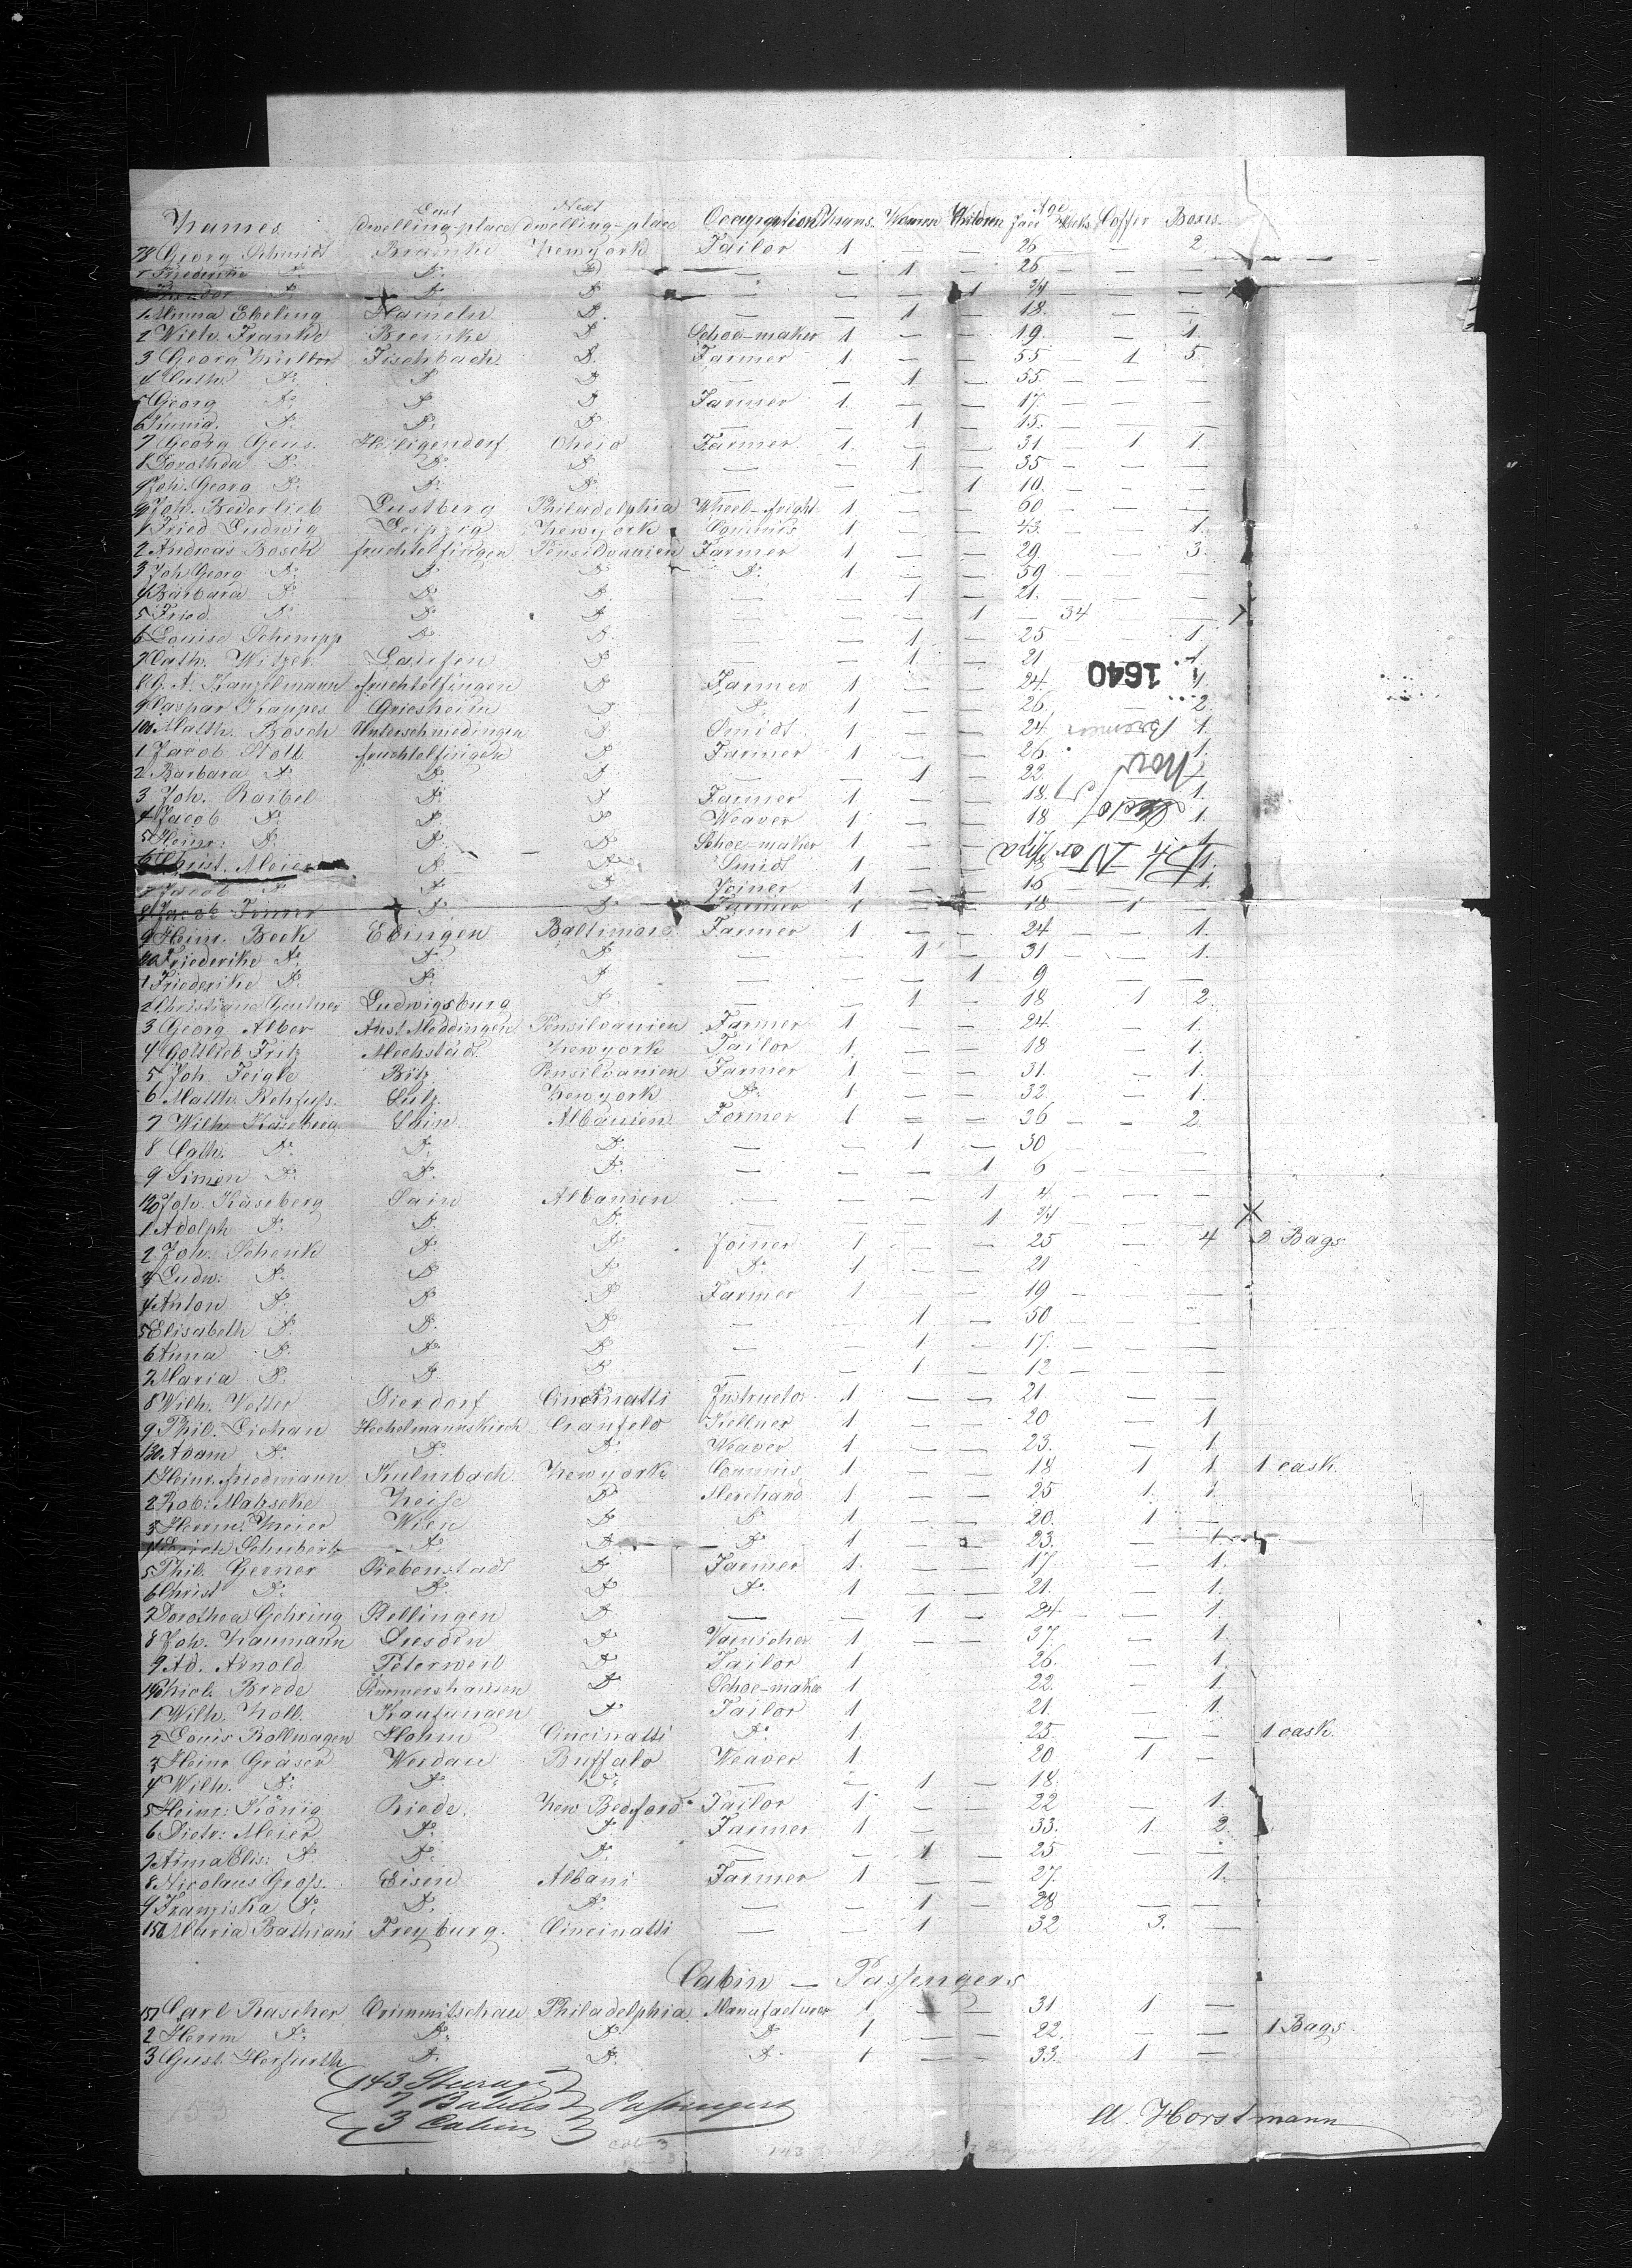 Names. Last dwelling-place Next dwelling-place Occupation Mans. Women Children Age Coffer Boxes.
78 Georg Schmidt Bremke Newyork Tailor 1 — — 26 — 2.
Friederike Do. Do. Do. — — 1 — 26 — — —
Do. Do. Do. — — — 1 3/4 — — —
1 Minna Ebeling Hameln Do. — — 1 — 18. — — —
2 Wilh. Franke Bremke Do. Schoe-maker 1 — — 19. — 1.
3 Georg Fischbach Do. Farmer 1. — — 55 1 5.
4 Cath. Do. Do. Do. — — 1 — 55. — — —
5 Georg Do. Do. Do. Farmer 1. — — 17. — — —
6 Do. Do. Do. — — 1 — 15. — — —
7 Georg Geus. Heiligendorf Oheio Farmer 1. — — 31 1 1.
8 Dorothea Do. Do. Do. — — 1 — 35 — — —
9 Joh. Georg Do. Do. Do. — — — 1 10. — — —
90 Joh. Bederlieb Lustberg Philadelphia Wheel-fright 1 — — 60 — — —
1 Fried Ludwig Leipzig Newyork Commis 1 — — 43. — — 1.
2 Andreas Bosch fruchtelfingen Pensilvanien Farmer 1 — — 29. — 3.
3 Joh Georg Do. Do. Do. Do. 1 — — 59 — — —
4 Barbara Do. Do. Do. — — 1 — 21. — — —
5 Fried. Do. Do. Do. — — — 1 3/4 — — X
6 Louise Schempp Do. Do. — — 1 — 25 — 1.
7 Cath. Witzer Laufen Do. — — 1 — 21 — 1.
8 G. A. Kanzelmann fruchtelfingen Do. Farmer 1 — — 24. 1.
1640
9 Caspar Kappes Griesheim Do. Do. 1 — — 26. 2.
100 Matth. Bosch Unterschmedingen Do. Smidt 1 — — 24 1.
Bremen
1 Jacob Stoll fruchtelfingen Do. Farmer 1 — — 26. 1.
2 Barbara Do. Do. Do. — — 1 — 22.
Nov
3 Joh. Raibel Do. Do. Farmer 1 — — 18. 1.
4 Jacob Do. Do. Do. Weaver 1 — — 18 1.
5 Heinr: Do. Do. Do. Schoe-maker 1 — —
6 Christ. Meier Do. Do. Smidt 1 — —
7 Jacob Do. Do. Do. Joiner 1 — — 16 1.
8 Jacob Do. Do. Farmer 1 — — 18 1 —
9 Heinr. Beck Ebingen Baltimore Farmer 1 — — 24 — 1.
110 Friederike Do. Do. Do. — — 1 — 31 — 1.
1 Friederike Do. Do. Do. — — — 1 9 — — —
2 Christiane Ludwigsburg Do. — — 1 — 18 1 2.
3 Georg Alber Pensilvanien Farmer 1 — — 24. — 1.
4 Gottlieb Fritz Mechstädt Newyork Tailor 1. — — 18 — 1.
5 Joh. Feigle Bitz Pensilvanien Farmer 1 — — 31. — 1.
6 Matth. Rehfuss. Sulz. Newyork Do. 1 — — 32. — 1.
7 Wilh. Käseberg Sain Albanien Farmer 1 — — 36 — — 2.
8 Cath. Do. Do. Do. — — 1 — 30 — —
9 Simon Do. Do. Do. — — — 1 6 — — —
120 Joh. Käseberg Sain Albanien — — — 1 4. — — —
1 Adolph Do. Do. Do. — — — 1 3/4 — — — X
2 Joh. Schenk Do. Do. Joiner 1 — — 25 — 4 2 Bags
3 Ludw: Do. Do. Do. Do. 1 — — 21 — —
4 Anton Do. Do. Do. Farmer 1 — — 19 — —
5 Elisabeth Do. Do. Do. — — 1 — 50 — —
6 Anna Do. Do. Do. — — 1 — 17. — —
7 Maria Do. Do. Do. — — 1 — 12 — —
8 Wilh. Vetter Dierdorf Cincinatti Instructor 1 — — 21 — —
9 Phil. Hechelmannskirch Cranfeld Kellner 1 — — 20 — 1
130 Adam Do. Do. Do. Weaver 1 — — 23. — 1.
1 Heinr. friedmann Kulmbach Newyork Commis 1 — — 18 1 1 1 cask.
2 Rob: Matzscke Neisse Do. Merchand 1 — — 25 1. 1.
3 Herrm. Meier Wien Do. Do. 1 — — 20. 1 —
4 Schubert Do. Do. Do. 1 — — 23. — 1.
5 Phil. Gerner Riebenstadt Do. Farmer 1. — — 17. — 1.
6 Christ Do. Do. Do. Do. 1 — — 21. — 1.
7 Dorothea Gehring Rellingen Do. — — 1 — 24 — 1.
8 Joh. Naumann Dresden Do. Varnicher 1 — — 37. — 1.
9 Ad. Arnold Peterweil Do. Tailor 1 26. — 1.
140 Nicl. Brede Simmershausen Do. Schoe-maker 1 22. — 1.
1 Wilh. Noll. Kaufungen Do. Tailor 1 21. — 1.
2 Louis Rollwagen Hohm Cincinatti Do. 1. 25. — — 1 cask.
3 Heinr Gräser Werdau Buffalo Weaver 1. 20 1 —
4 Wilh. Do. Do. Do. — — 1 — 18.
5 Heinr: König Riede. New Bedford Tailor 1 — — 22 — 1.
6 Dietr: Meier Do. Do. Farmer 1 — 33. 1. 2.
7 Anna Elis: Do. Do. Do. — — 1 25 — —
8 Nicolaus Gross. Eisen Albani Farmer 1 — — 27. 1.
9 Franziska Do. Do. Do. — — 1 — 28 — —
150 Maria Bathiani Freyburg. Cincinatti — — 1 32 3. —
Cabin — Passengers
151 Carl Rascher Crimmitschau Philadelphia Manufacturer 1 — — 31 1 —
2 Herrm Do. Do. Do. Do. 1 — — 22. — — 1 Bags.
3 Gust. Herfurth Do. Do. Do. 1 — — 33. 1 —
143 Steerage
7 Babies Passengers
3 Cabin
153
A. Horstmann